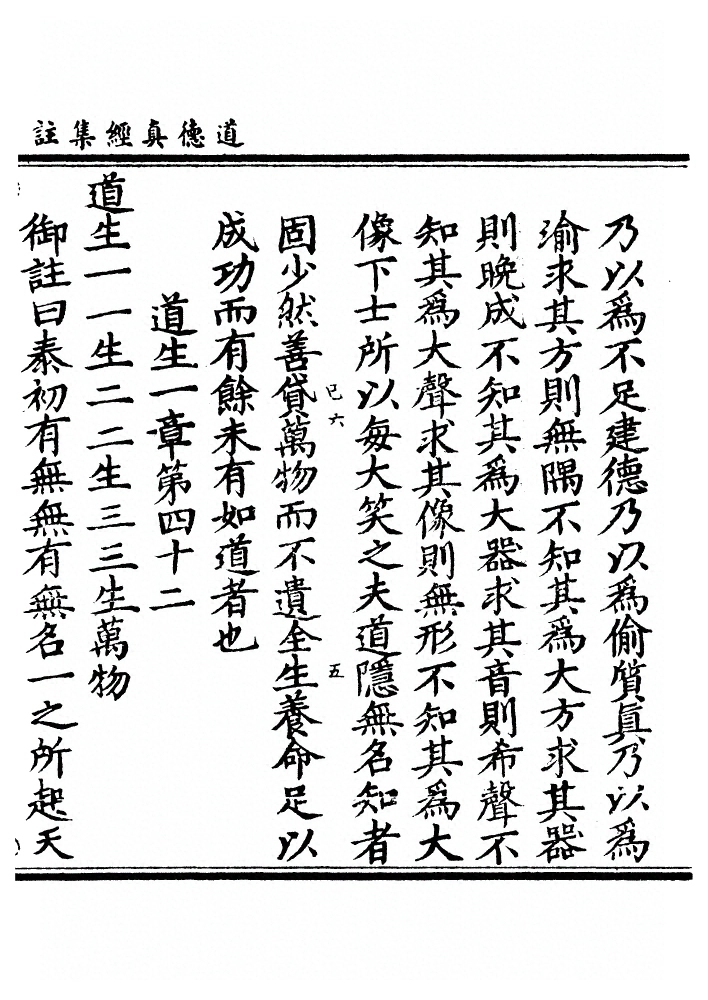 道德真經集註
乃以爲不足建德乃以爲偷質眞乃以爲
渝求其方則無隅不知其爲大方求其器
則晚成不知其爲大器求其音則希聲不
知其爲大聲求其像則無形不知其爲大
像下士所以每大笑之夫道隱無名知者
已六
五
固少然善貸萬物而不遺全生養命足以
成功而有餘未有如道者也
道生一章第四十二
道生一一生二二生三三生萬物
御註曰泰初有無無有無名一之所起天